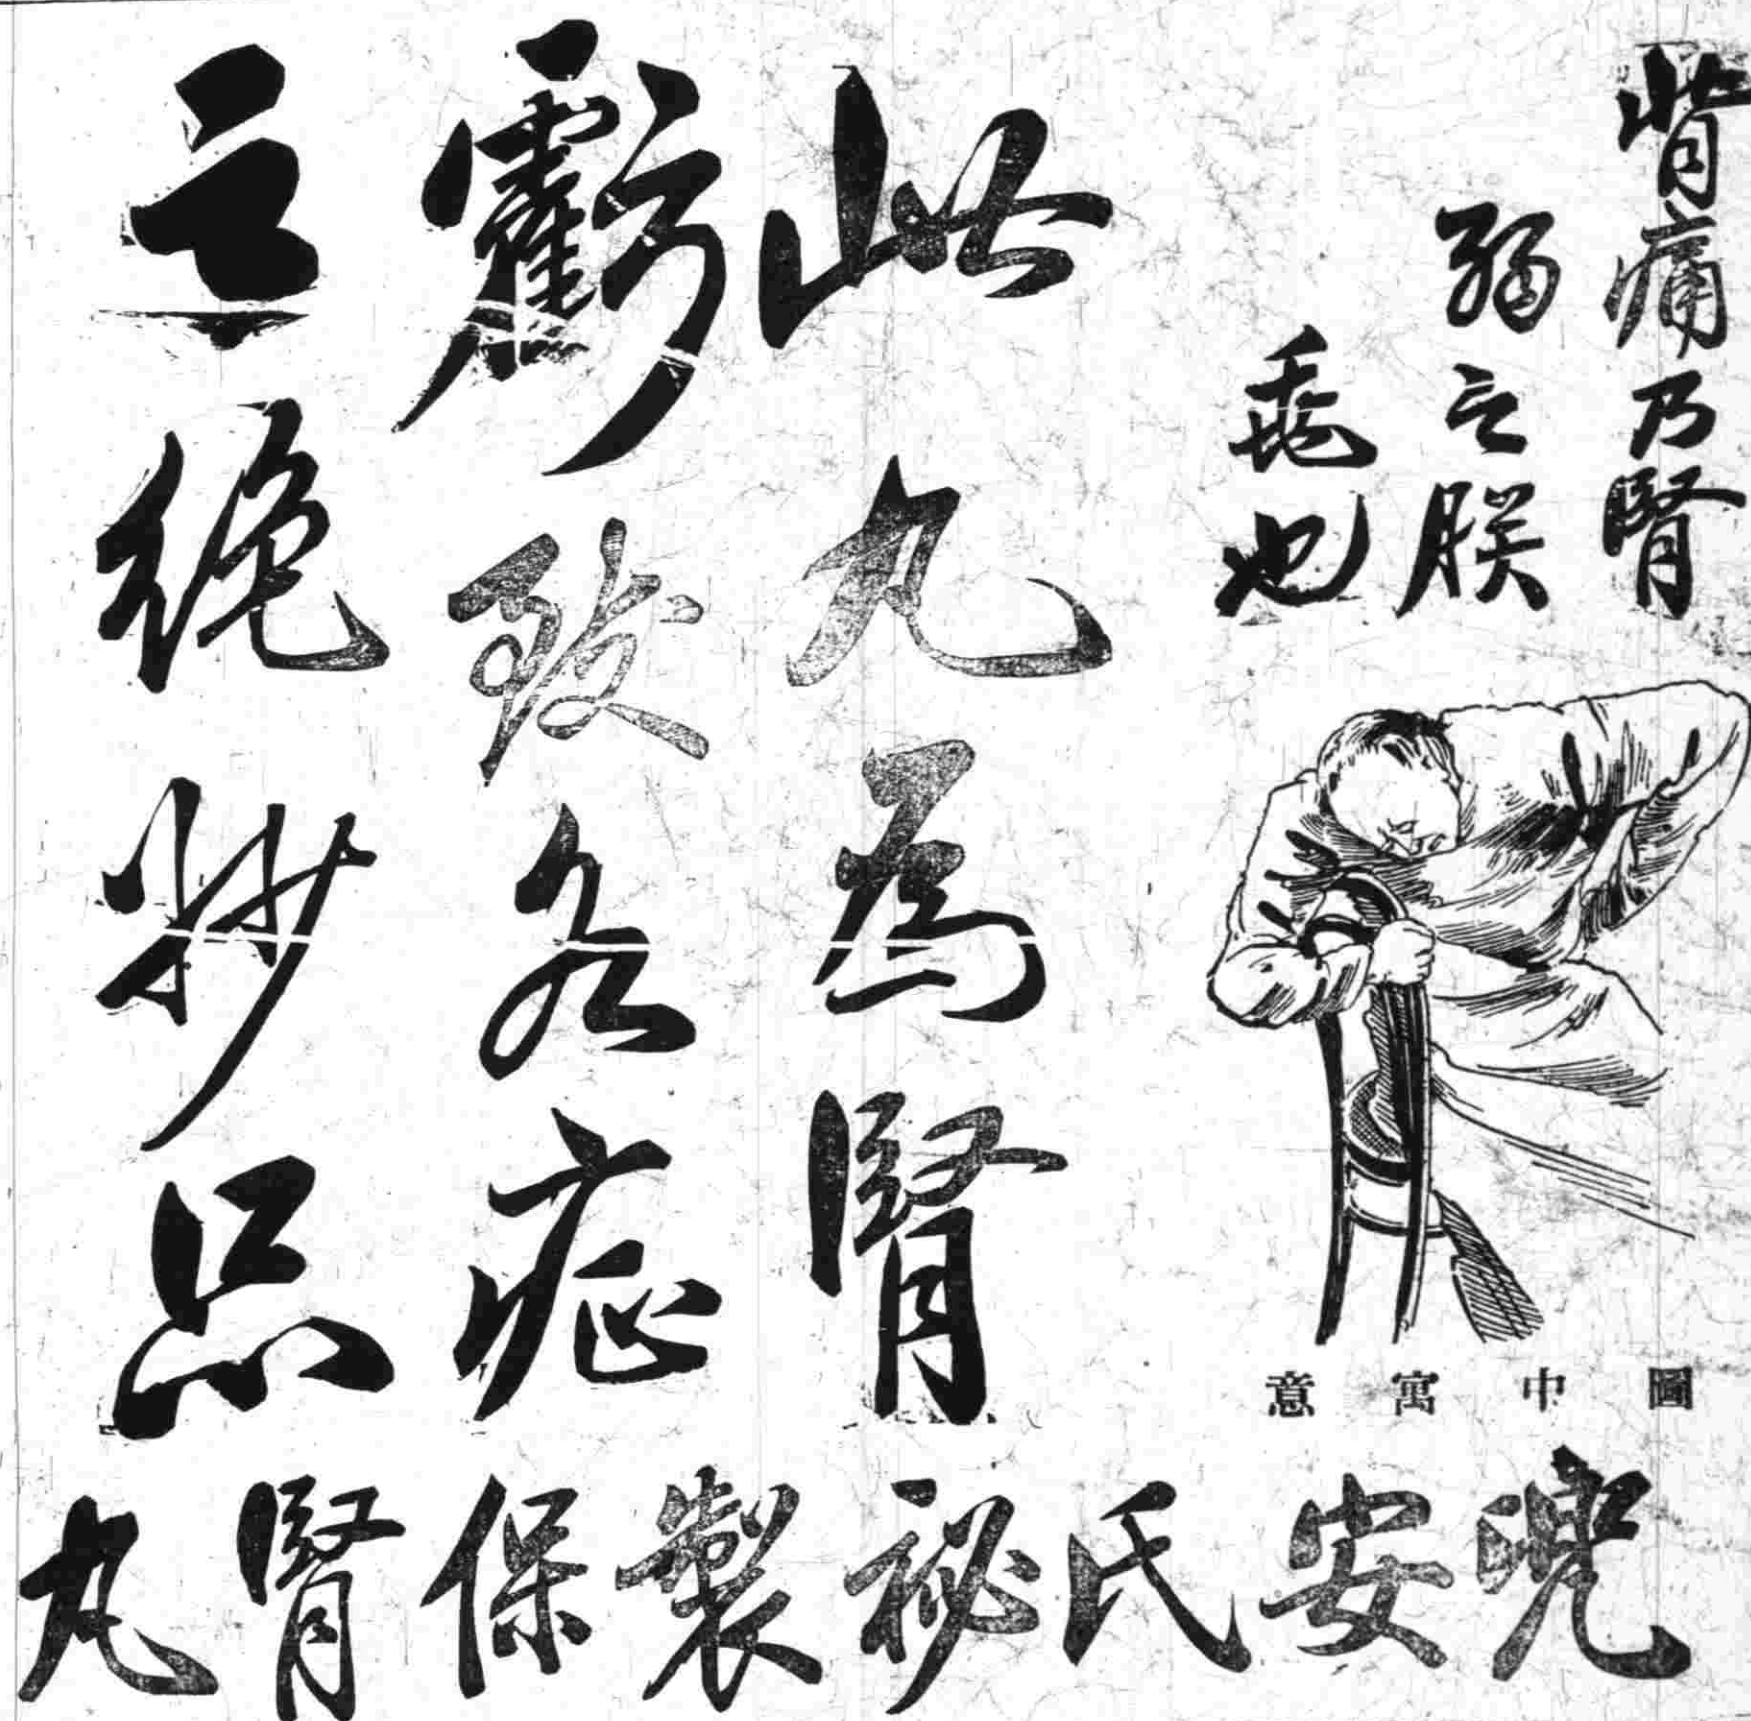 背痛乃腎
弱之朕
也
圖中寓意
此丸為腎
虧致各症
之絕妙品
兜安氏祕製保腎丸